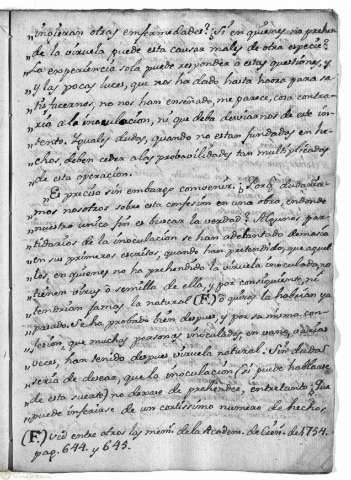 „ tuvieran otras enfermedades? Si en quienes no prehen-
„ de la viruela puede esta causar males de otra especie?
„ La experiencia sola puede responder á estas questiones, y
„ y las pocas luces, que nos ha dado hasta hora para sa-
„ tisfacernos, no nos han enseñado, me parece, cosa contra-
„ ria á la inoculacion, ni que deba desviarnos de este in-
„ tento. Iguales dudas, quando no estan fundadas en he-
„ chos, deben ceder á las probavilidades tan multiplicadas
„ de esta operacion.
„ Es preciso sin embargo convenir. ¿Porq.e dudaria-
mos nosotros sobre esta confesion en una obra, en donde
„ nuestro unico fin es buscar la verdad? Algunos par-
„ tidarios de la inoculacion se han adelantado demasia
„ en sus primeros escritos, quando han pretendido, que aque-
„ llos, en quienes no ha prehendido la viruela inoculada, no
„ tienen virus ó semilla de ella, y por consiguiente, ni
„ tendrian jamas la natural (F.) ó quizas la habrian ya
„ pasado. Se ha probado bien despues, y por su misma con-
„ fesion, que muchas personas inoculadas, en vano, varias
„ veces, han tenido despues viruela natural. Sin duda se
„ seria de desear, que la inoculacion (si puede hablarse
„ de esta suerte) no dexase de prehender, entretanto, que
„ puede inferirse de un cortissimo numero de hechos,
(F.) Ved entre otros las mem.s de la Academ. de Cienc. de 1754.
pag. 644. y 645.